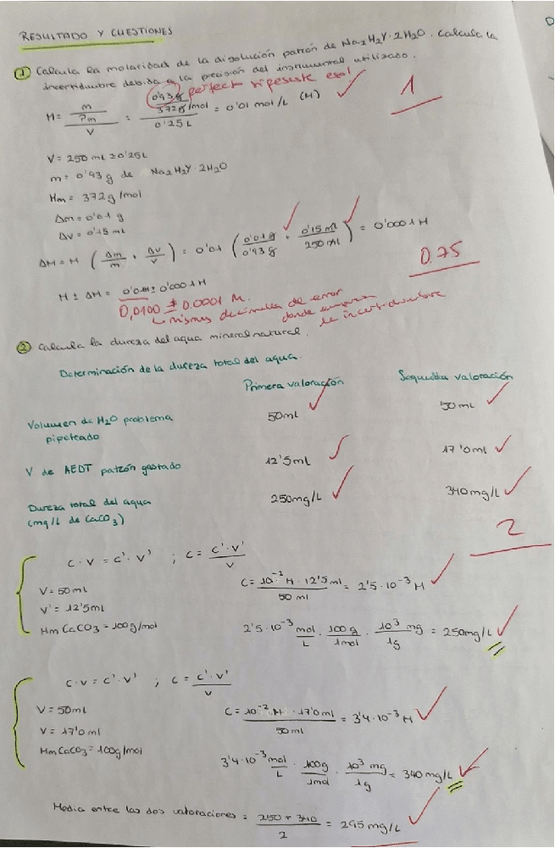 RESULTADO Y CUESTIONES
① Calcula la molaridad de la disolución patrón de Na₂H₂Y·2H₂O. Calcule la
incertidumbre debida a la precisión del instrumental utilizado.
perfect si pesaste eso!
M = (m / Pm) / V = (0'93g / 372g/mol) / 0'25L = 0'01 mol/L (M)
1
V = 250 mL = 0'25L
m = 0'93 g de Na₂H₂Y 2H₂O
Mm = 372 g/mol
Δm = 0'01 g
Δv = 0'15 mL
ΔM = M (Δm/m + ΔV/V) = 0'01 (0'01g/0'93g + 0'15 ml/250 ml) = 0'0001M
0.75
M ± ΔM = 0'01M ± 0'0001M
0,0100 ± 0.0001 M.
mismos decimales de error
donde empieza
la incertidumbre
② Calcula la dureza del agua mineral natural.
Determinación de la dureza total del agua.
Primera valoración Segunda valoración
Volumen de H₂O problema 50ml 50ml
pipeteado
V de AEDT patrón gastado 12'5ml 17'0ml
Dureza total del agua 250mg/L 340mg/L
(mg/L de CaCO₃)
2
C·V = C'·V' ; C = C'·V'/V
V = 50ml
V' = 12'5ml
Mm CaCO₃ = 100g/mol
C = 10⁻² M · 12'5ml / 50 ml = 2'5·10⁻³ M
2'5·10⁻³ mol/L · 100g/1mol · 10³ mg/1g = 250mg/L
C·V = C'·V' ; C = C'·V'/V
V = 50ml
V = 17'0ml
Mm CaCO₃ = 100g/mol
C = 10⁻² M · 17'0ml / 50ml = 3'4·10⁻³ M
3'4·10⁻³ mol/L · 100g/1mol · 10³ mg/1g = 340mg/L
Media entre las dos valoraciones = 250 + 340 / 2 = 295mg/L